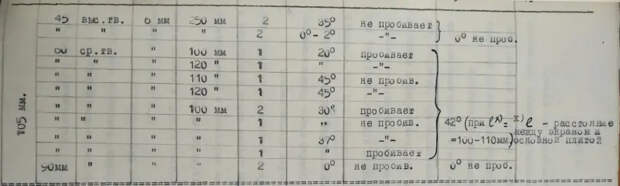 45 выс.тв. 6 мм 250 мм 2 35° не пробивает
" " " " 2 0°- 2° -"- 0° не проб.
60 ср.тв. " 100 мм 1 20° пробивает
" " " 120 " 1 " -"-
" " " 110 " 1 45° не пробив.
" " " 120 " 1 45° -"-
" " " 100 мм 2 30° пробивает
" " " " 1 " не пробив. 42° (при ℓх)= х)ℓ - расстояние
" " " " 1 37° -"- =100-110мм) между экраном и основной плитой
" " " " 1 " пробивает
90мм " " " 2 0° не пробив. 0° не проб.
105 мм.